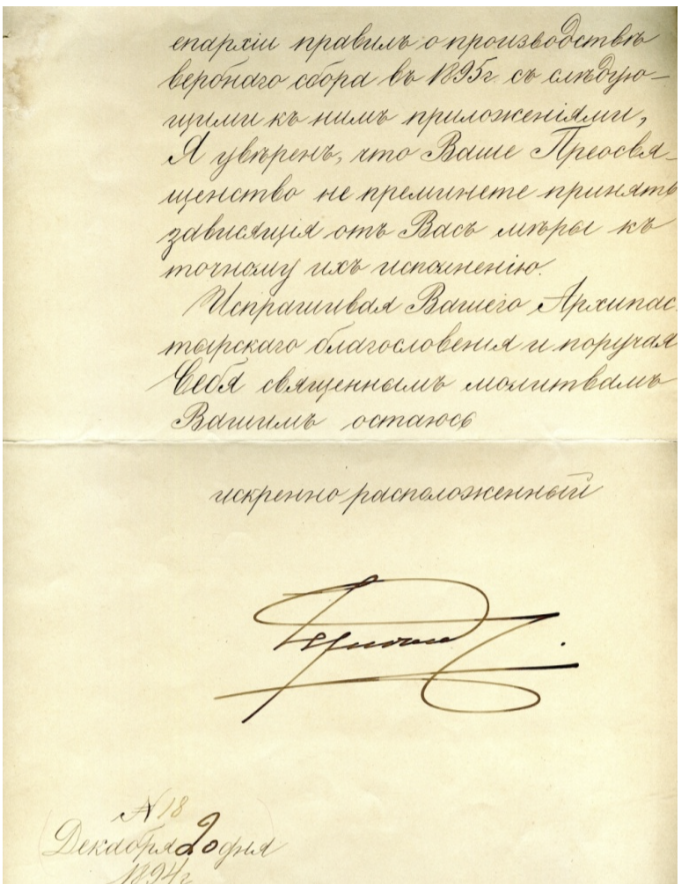 епархіи правилъ о производствѣ
вербнаго сбора въ 1895г съ слѣдую-
щими къ нимъ приложеніями,
Я увѣренъ, что Ваше Преосвя-
щенство не преминете принять
зависящія отъ Васъ мѣры къ
точному ихъ исполненію.
Испрашивая Вашего Архипас-
тырскаго благословенія и поручая
Себя священнымъ молитвамъ
Вашимъ остаюсь
искренно расположенный
N 18
Декабря 20 дня
1894г